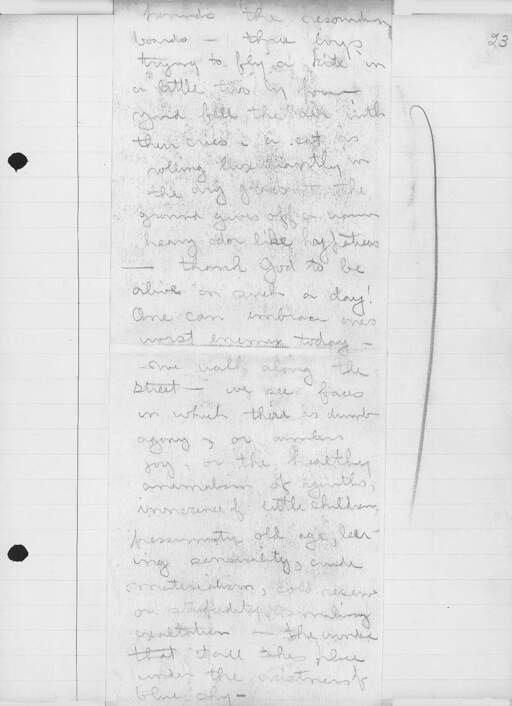 23
the resounding
boards — three boys
trying to fly a kite in
a little two by four
yard fill the air with
their cries; a cat is
rolling luxuriantly in
the dry grass — the
ground gives off a warm
heavy odor like
— thank God to be
alive on such a day!
One can embrace ones
worst enemy today —
— one walks along the
street — we see faces
in which there is dumb
agony, or
joy, or the healthy
animalism of youths,
innocence of little children,
pessimistic old age, leer-
ing sensuality, crude
materialism, cold reserve
or stupidity, smiling
exaltation — the
that all takes place
under the vastness of
blue sky —